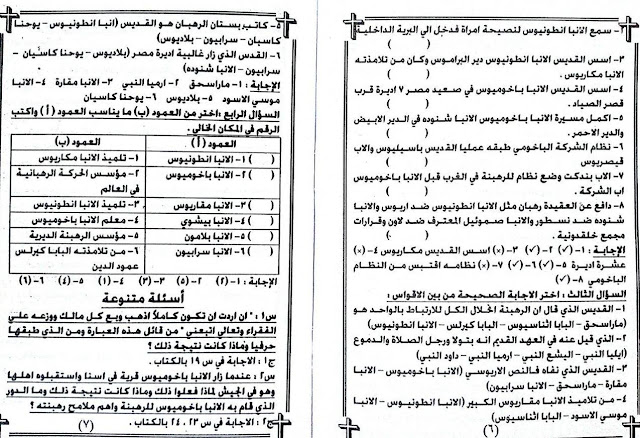 ٢- سمع الانبا انطونيوس لنصيحة امراة فدخل الي البرية الداخلية
( )
٣- اسس القديس الانبا انطونيوس دير البراموس وكان من تلامذته
الانبا مكاريوس . ( )
٤- اسس القديس الانبا باخوميوس في صعيد مصر ٧ اديرة قرب
قصر الصياد . ( )
٥- اكمل مسيرة الانبا باخوميوس الانبا شنوده في الدير الابيض
والدير الاحمر . ( )
٦- نظام الشركة الباخومي طبقه عمليا القديس باسيليوس والاب
قيصريوس ( )
٧- الاب بندكت وضع نظام للرهبنة في الغرب قبل الانبا باخوميوس
اب الشركة . ( )
٨- دافع عن العقيدة رهبان مثل الانبا انطونيوس ضد اريوس والانبا
شنوده ضد نسطور والانبا صموئيل المعترف ضد لاون وقرارات
مجمع خلقدونية . ( )
الإجابة : ١-(✓) ٢-(✓) ٣-(×) اسس القديس مكاريوس ٤-(×)
عشرة اديرة ٥-(✓) ٦-(✓) ٧-(×) نظامه اقتبس من النظام
الباخومي ٨-(✓)
السؤال الثالث : اختر الاجابة الصحيحة من بين الاقواس :
١- القديس الذي قال ان الرهبنة انحلال الكل للارتباط بالواحد هو
(ماراسحق - البابا اثناسيوس - البابا كيرلس - الانبا انطونيوس)
٢- الذي قيل عنه في العهد القديم انه بتولا ورجل الصلاة والدموع
(ايليا النبي - اليشع النبي - ارميا النبي - داود النبي)
٣- القديس الذي نفاه فالنص الاريوسي (الانبا باخوميوس - الانبا
مقارة - ماراسحق - الانبا سرابيون)
٤- من تلاميذ الانبا مقاريوس الكبير (الانبا انطونيوس - الانبا
موسي الاسود - البابا اثناسيوس)
(٦)
٥- كاتب بستان الرهبان هو القديس (انبا انطونيوس - يوحنا
كاسيان - سرابيون - بلاديوس)
٦- القدس الذي زار غالبية اديرة مصر (بلاديوس - يوحنا كاسيان -
سرابيون - الانبا شنوده)
الإجابة : ١- ماراسحق ٢- ارميا النبي ٣- الانبا مقارة ٤- الانبا
موسي الاسود ٥- بلاديوس ٦- يوحنا كاسيان
السؤال الرابع : اختر من العمود (ب) ما يناسب العمود (أ) واكتب
الرقم في المكان الخالي .
العمود (أ) العمود (ب)
( ) ١- الانبا انطونيوس ١- تلميذ الانبا مكاريوس
( ) ٢- الانبا باخوميوس ٢- مؤسس الحركة الرهبانية
في العالم
( ) ٣- الانبا مقاريوس ٣- تلميذ الانبا انطونيوس
( ) ٤- الانبا بيشوي ٤- معلم الانبا باخوميوس
( ) ٥- الانبا بلامون ٥- مؤسس الرهبنة الديرية
( ) ٦- الانبا سرابيون ٦- من تلامذته البابا كيرلس
عمود الدين
الإجابة : ١-(٢) ٢-(٥) ٣-(٣) ٤-(١) ٥-(٤) ٦-(٦)
أسئلة متنوعة
س١ : " ان اردت ان تكون كاملاً اذهب وبع كل مالك ووزعه علي
الفقراء وتعالي اتبعني " من قائل هذه العبارة ومن الذي طبقها
حرفيا وماذا كانت نتيجة ذلك ؟
ج١ : الاجابة في س ١٩ بالكتاب .
س٢ : عندما زار الانبا باخوميوس قرية في اسنا واستقبلوه اهلها
وهو في الجيش لماذا فعلوا ذلك وماذا كانت نتيجة ذلك وما الدور
الذي قام به الانبا باخوميوس للرهبنة واهم ملامح رهبنته ؟
ج٢ : الاجابة في س ٢٣ ، ٢٤ بالكتاب .
(٧)